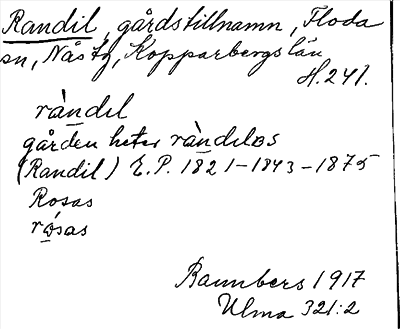 Randil, gårdstillnamn, Floda
sn, Nås tg, Kopparbergs län
H. 241.
ràndɩl
gården heter ràndɩlas
(Randil) E.P. 1821–1843–1875
Rosas
rósas
1917
Ulma 321:2